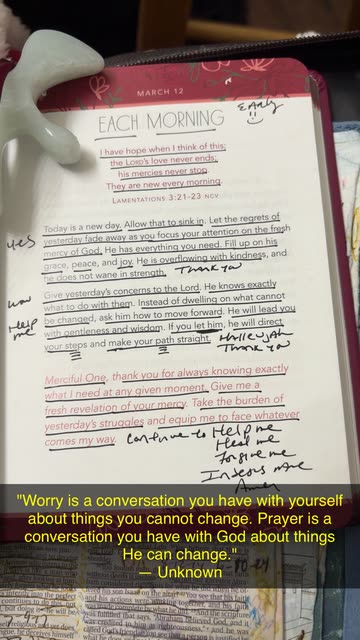 MARCH 12
EACH MORNING
EARly
I have hope when I think of this:
the LORD's love never ends;
his mercies never stop.
They are new every morning.
LAMENTATIONS 3:21-23 NCV
Today is a new day. Allow that to sink in. Let the regrets of
yes yesterday fade away as you focus your attention on the fresh
mercy of God. He has everything you need. Fill up on his
grace, peace, and joy. He is overflowing with kindness, and
he does not wane in strength. Thank you
Give yesterday's concerns to the Lord. He knows exactly
what to do with them. Instead of dwelling on what cannot
Help be changed, ask him how to move forward. He will lead you
me with gentleness and wisdom. If you let him, he will direct
your steps and make your path straight. Hallelujah
Thank you
Merciful One, thank you for always knowing exactly
what I need at any given moment. Give me a
fresh revelation of your mercy. Take the burden of
yesterday's struggles and equip me to face whatever
comes my way. continue to Help me
Heal me
forgive me
Amen
"Worry is a conversation you have with yourself
about things you cannot change. Prayer is a
conversation you have with God about things
He can change."
— Unknown